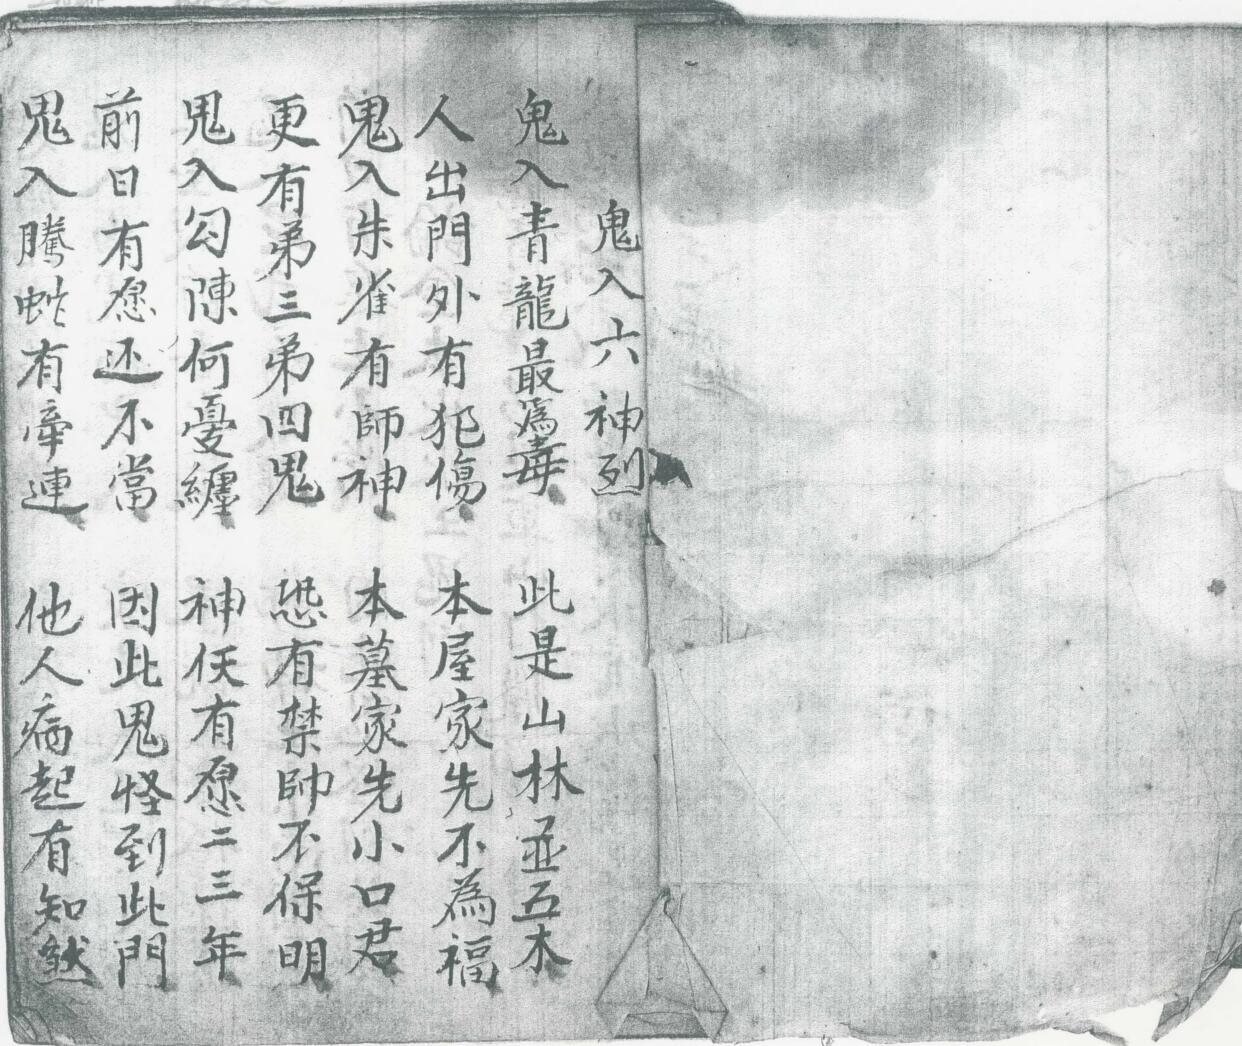 鬼入六神烈
鬼入青龍最為毒　此是山林並五木
人出門外有犯傷　本屋家先不為福
鬼入朱雀有師神　本墓家先小口君
更有弟三弟四鬼　恐有禁帥不保明
鬼入勾陳何憂纏　神伏有愿二三年
前日有愿还不當　因此鬼怪到此門
鬼入騰蛇有牽連　他人病起有知然